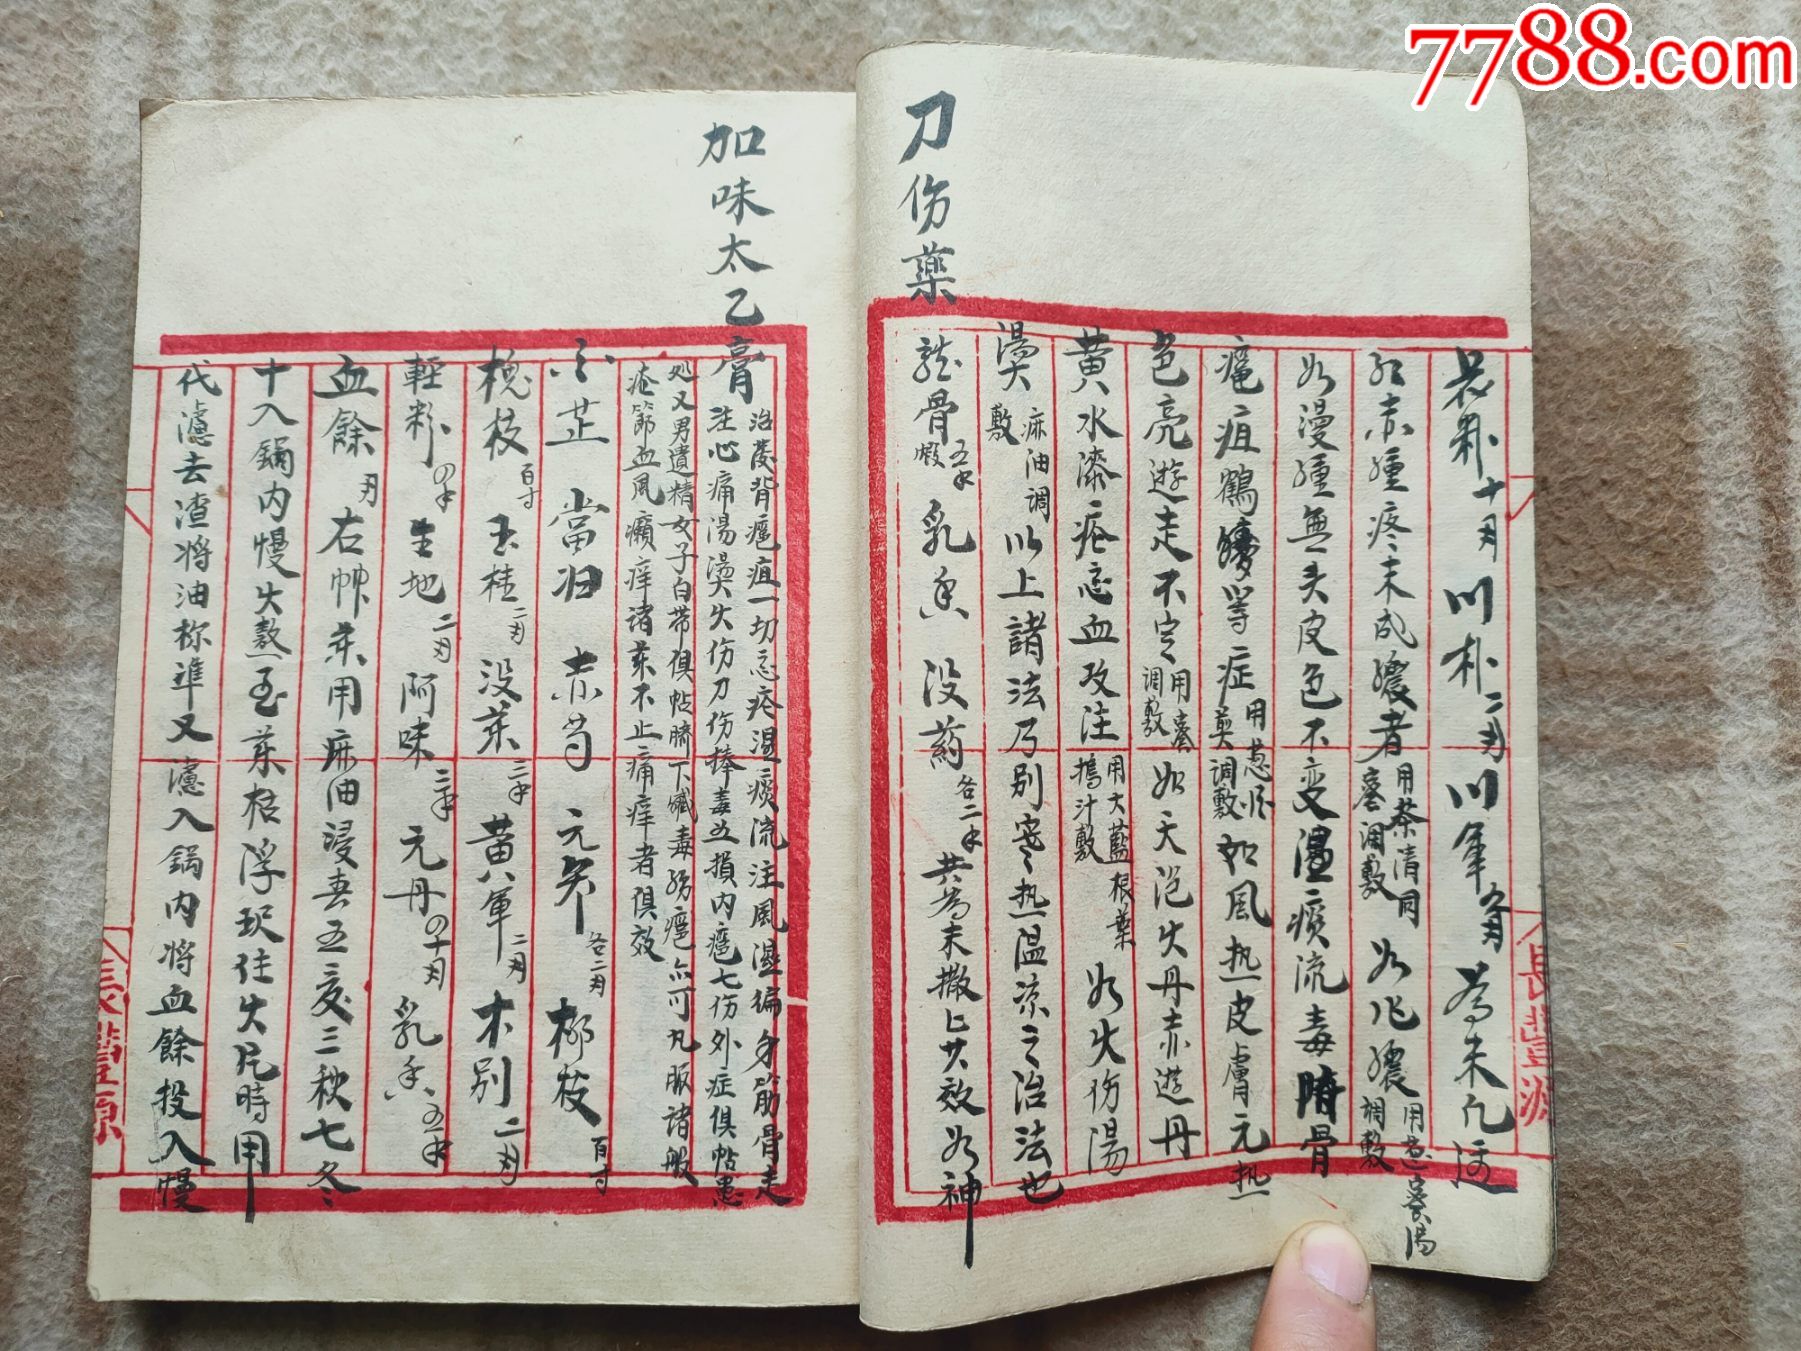 7788.com
花粉十月 川朴二月 川軍 為末凡遇
紅赤腫疼未成膿者 用茶清同蜜調敷 如already膿 用葱蜜湯調敷
如漫腫無头皮色不变湿痰流毒附骨
癰疽鶴膝等症 用葱酒煎調敷 如風热皮膚元热
色亮遊走不定 用蜜調敷 如天泡火丹赤遊丹
黄水漆瘡忌血攻注 用大藍根葉搗汁敷 如火伤湯
燙 麻油調敷 以上諸法乃别寒热温凉之治法也
刀伤藥
龍骨 五錢煅 乳香 没药 各二錢 共為末撒上其效如神
加味太乙膏
治發背癰疽一切忌疮湿痰流注風湿徧身筋骨走
注心痛湯燙火伤刀伤棒毒五損内癰七伤外症俱帖患
处又男遺精女子白带俱帖臍下臟毒肠癰亦可丸服諸般
疮節血風癩痒諸藥不止痛痒者俱效
白芷 當归 赤芍 元参 各二月 柳枝 百寸
槐枝 百寸 玉桂 二月 没藥 三錢 黄軍 二月 木别 二月
輕粉 四錢 生地 二月 阿味 三錢 元丹 四十月 乳香 五錢
血餘 月 右帥藥用麻油浸春五夏三秋七冬
十入鍋内慢火熬至藥枯浮玑住火片時用
代濾去渣将油称準又濾入鍋内将血餘投入慢
長豐源
長豐源